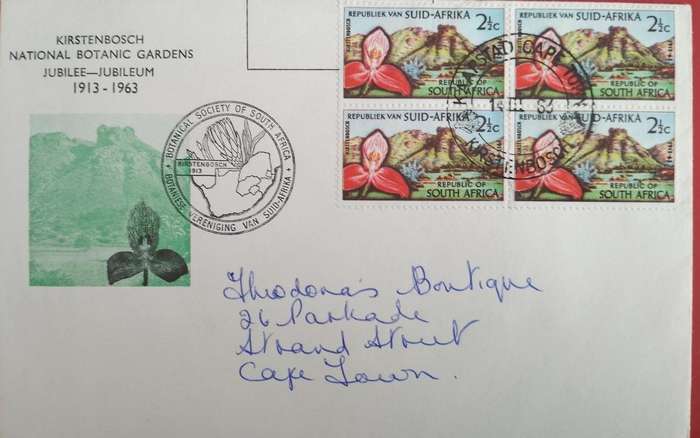 KIRSTENBOSCH
NATIONAL BOTANIC GARDENS
JUBILEE—JUBILEUM
1913 - 1963
BOTANICAL SOCIETY OF SOUTH AFRICA
KIRSTENBOSCH
1913
BOTANIESE VERENIGING VAN SUID-AFRIKA
REPUBLIEK VAN SUID-AFRIKA
2½c
KIRSTENBOSCH
1913-1963
REPUBLIC OF
SOUTH AFRICA
REPUBLIEK VAN SUID-AFRIKA
2½c
REPUBLIC OF
SOUTH AFRICA
REPUBLIEK VAN SUID-AFRIKA
2½c
KIRSTENBOSCH
1913-1963
REPUBLIC OF
SOUTH AFRICA
REPUBLIEK VAN SUID-AFRIKA
2½c
KIRSTENBOSCH
1913-1963
REPUBLIC OF
SOUTH AFRICA
KAAPSTAD CAPE TOWN
14 III 63
KIRSTENBOSCH
Theodora's Boutique
26 Parkade
Strand Street
Cape Town.